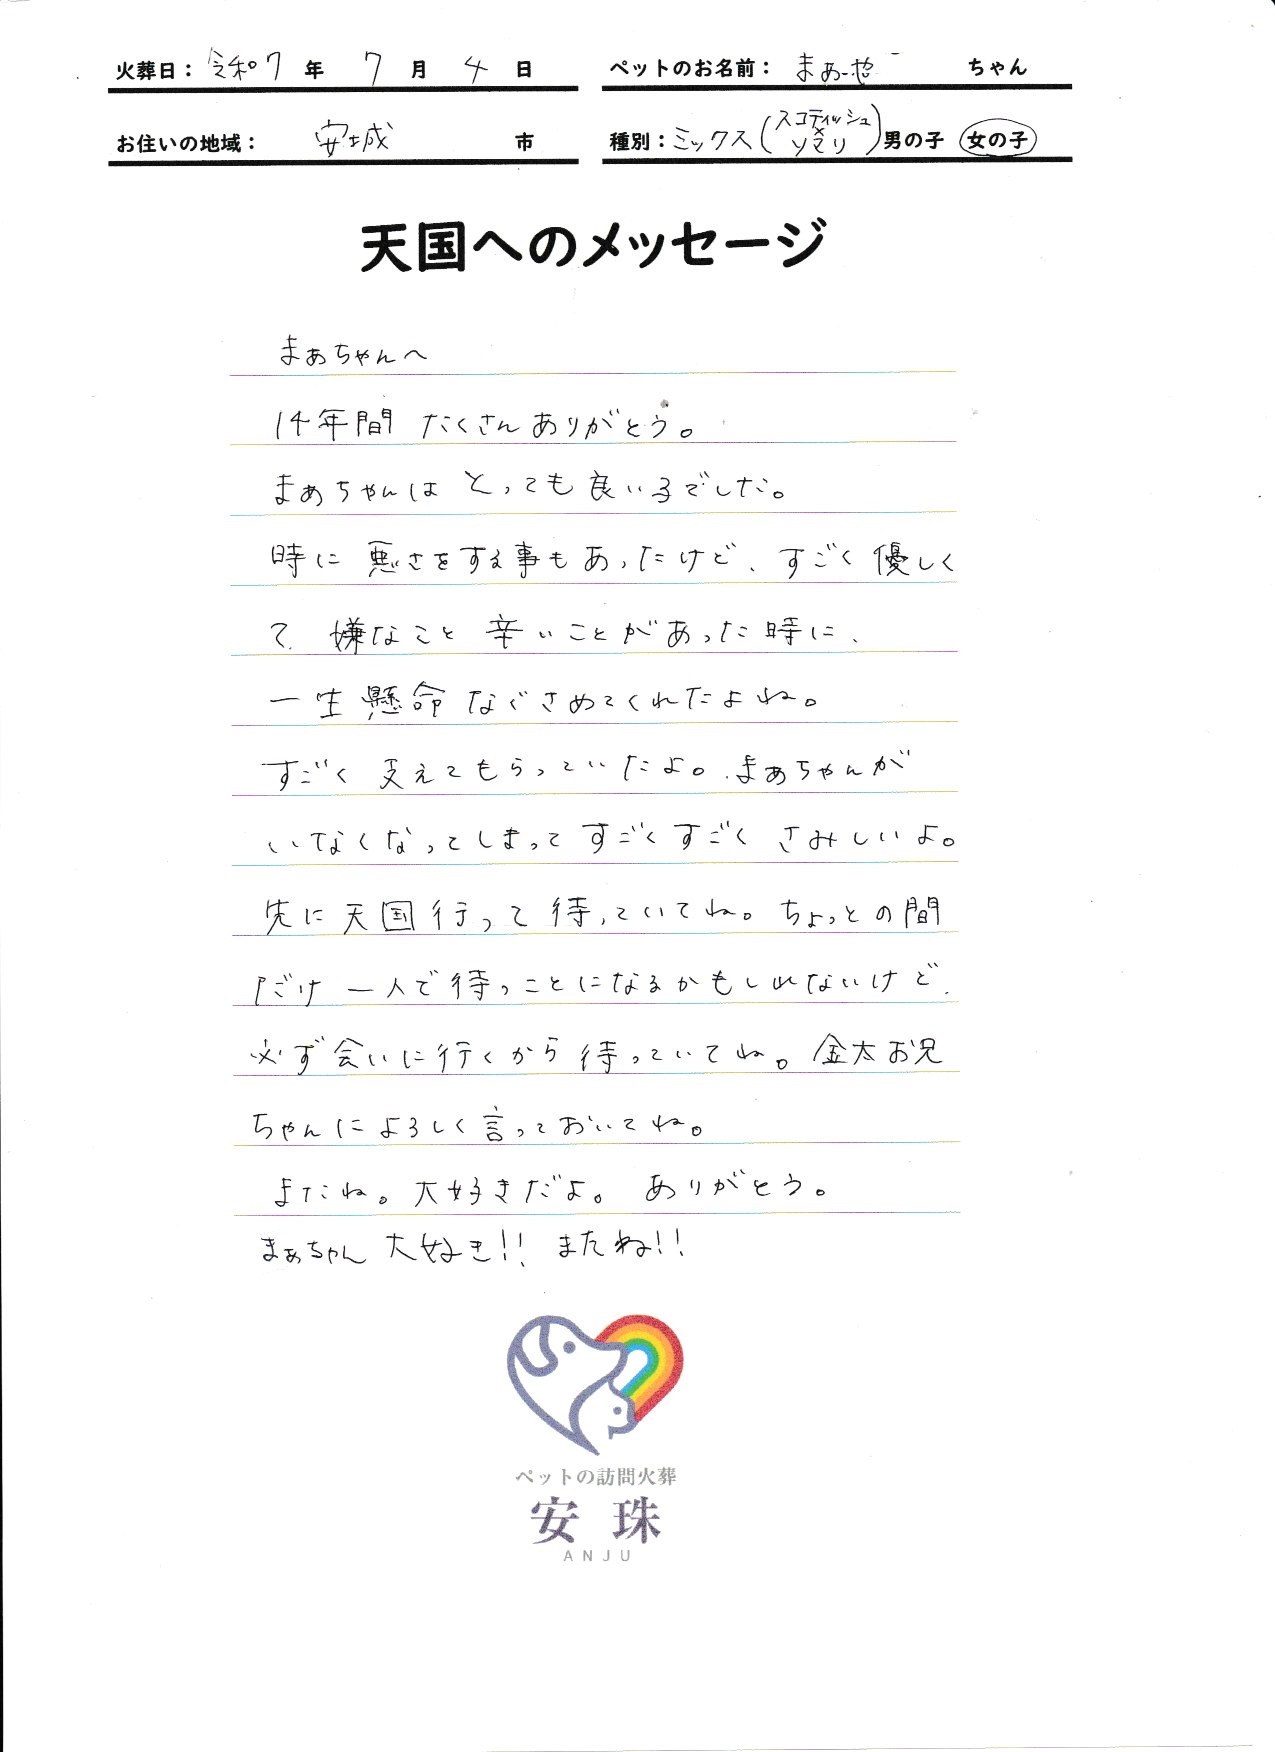 火葬日：令和7年 7月 4日 ペットのお名前：まぁーや ちゃん
お住いの地域：安城 市 種別：ミックス(スコティッシュ×ソマリ) 男の子 女の子
天国へのメッセージ
まぁちゃんへ
14年間 たくさんありがとう。
まぁちゃんは とっても良い子でした。
時に悪さをする事もあったけど、すごく優しく
て、嫌なこと 辛いことがあった時に、
一生懸命なぐさめてくれたよね。
すごく支えてもらっていたよ。まぁちゃんが
いなくなってしまってすごくすごく さみしいよ。
先に天国行って待っていてね。ちょっとの間
だけ一人で待つことになるかもしれないけど、
必ず会いに行くから待っていてね。金太お兄
ちゃんによろしく言っておいてね。
またね。大好きだよ。 ありがとう。
まぁちゃん 大好き!! またね!!
ペットの訪問火葬
安珠
ANJU